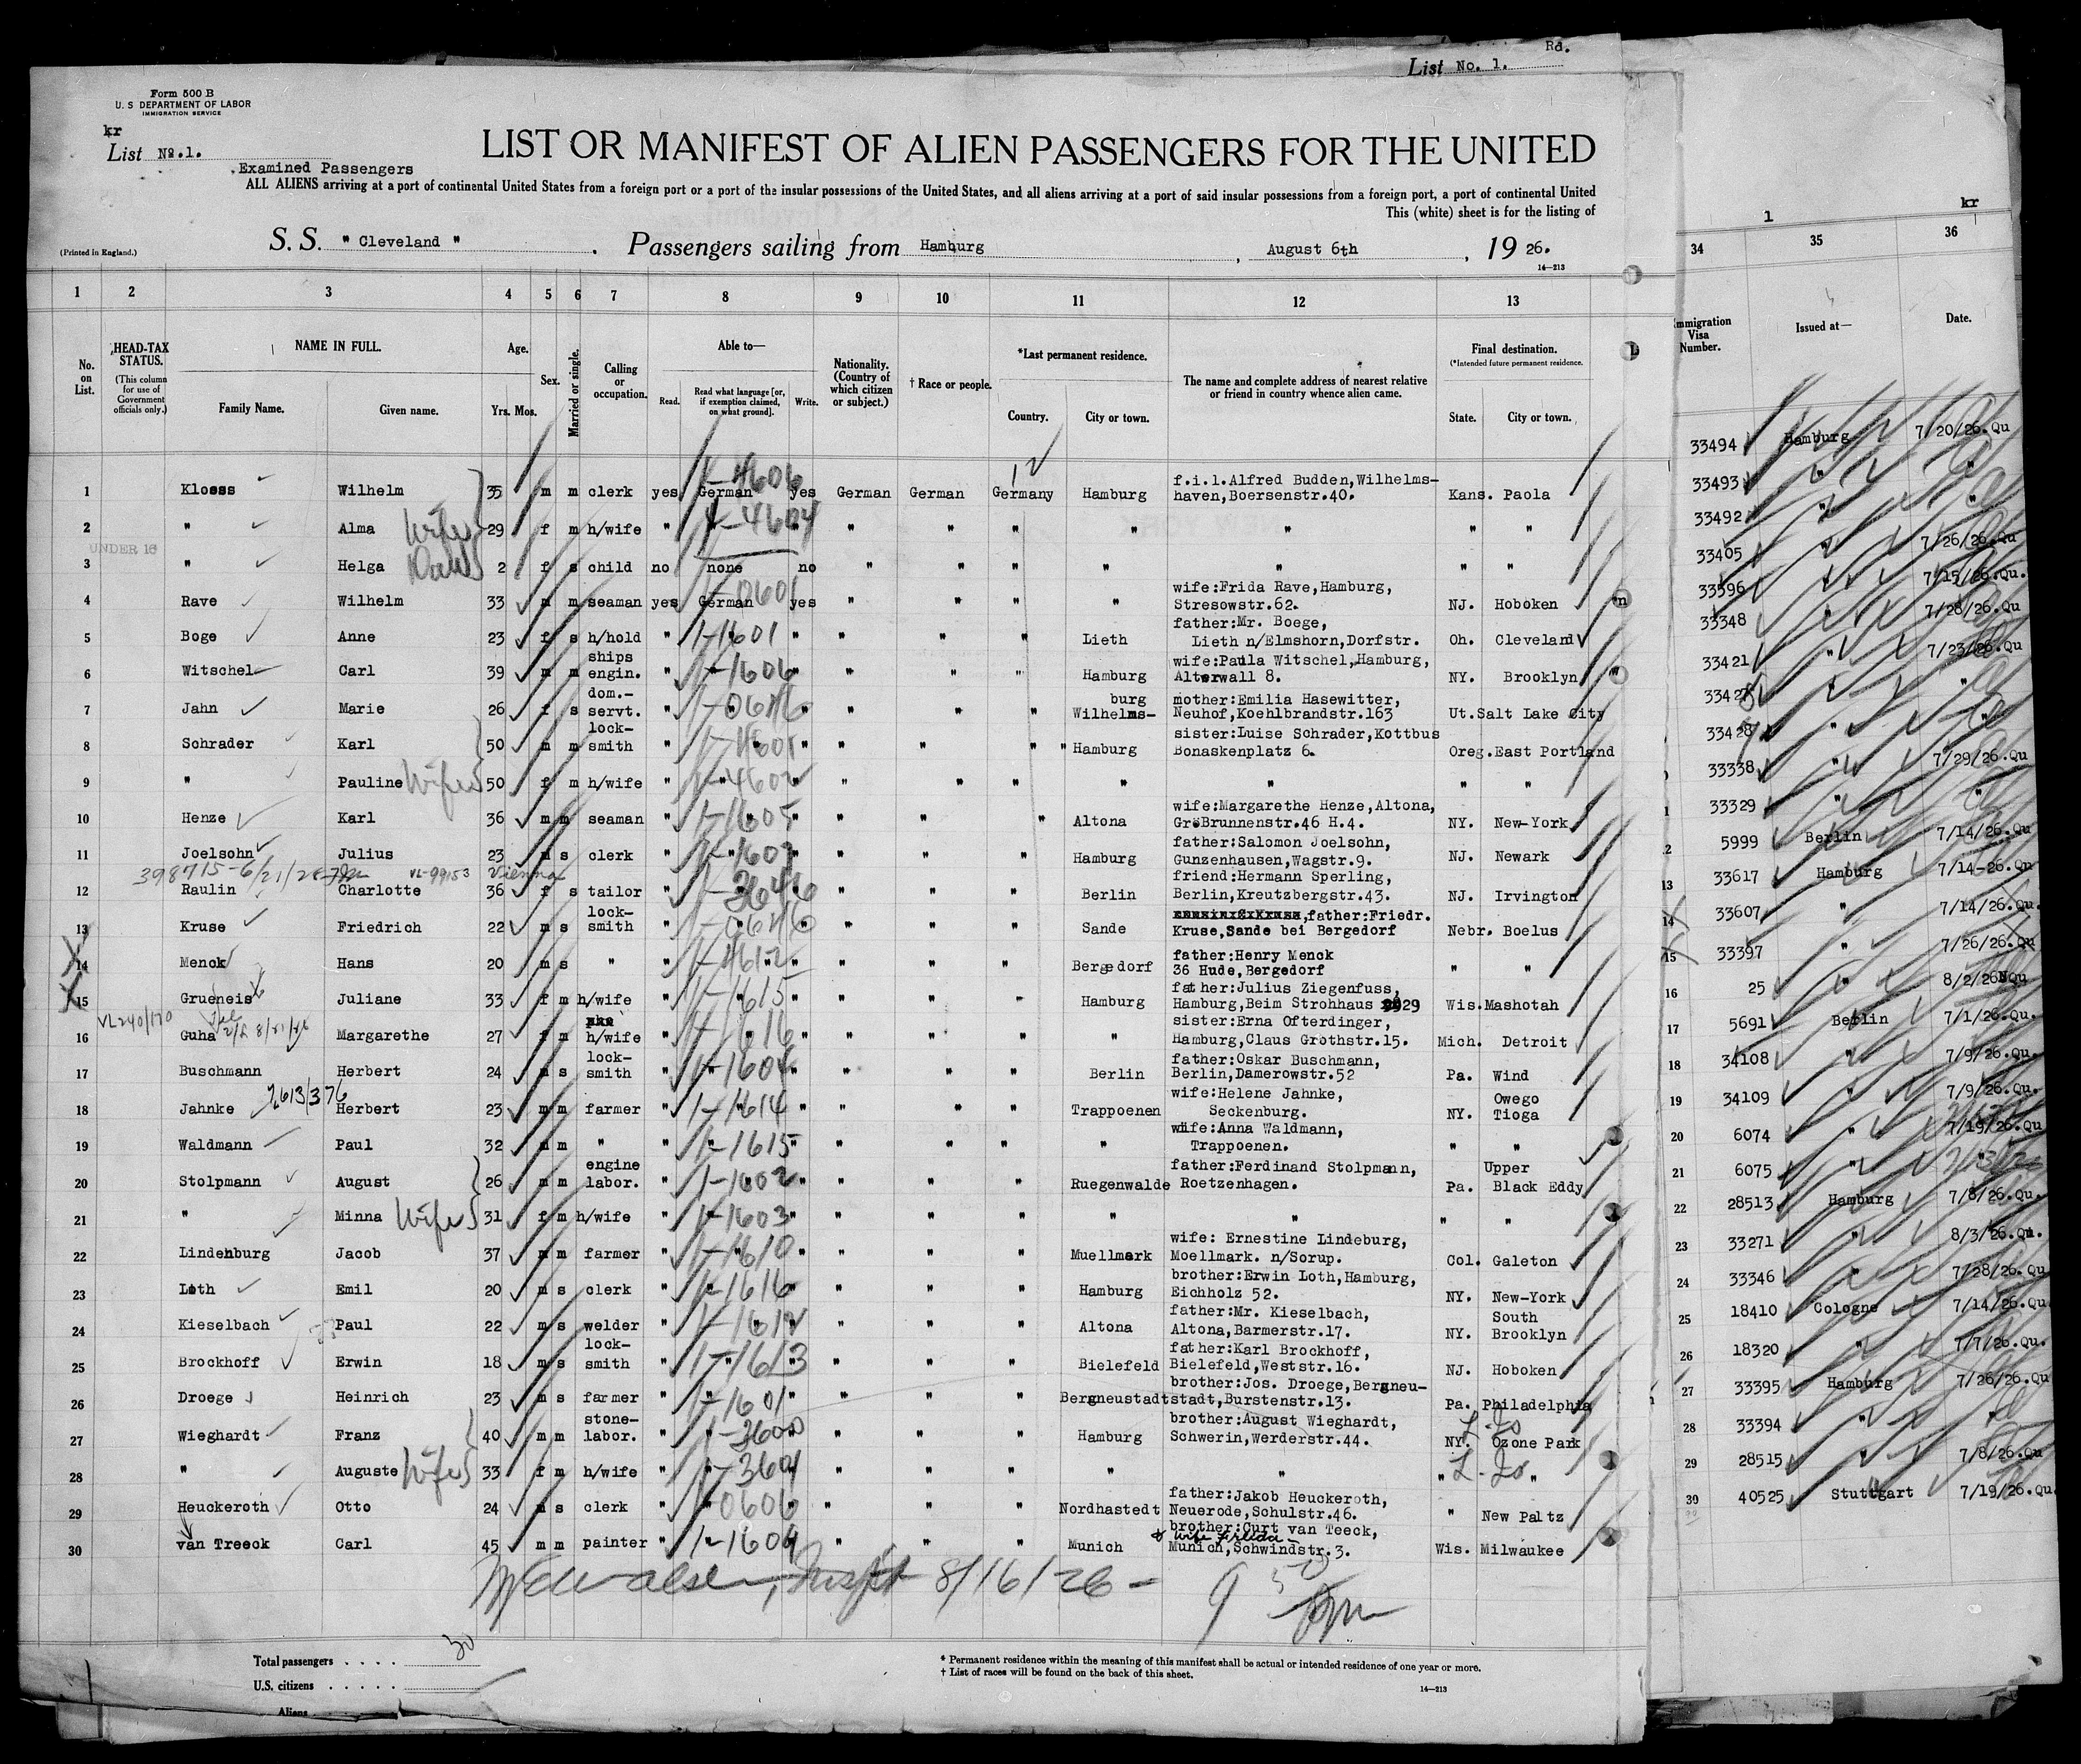 Rd.
List No. 1.
Form 500 B
U. S DEPARTMENT OF LABOR
IMMIGRATION SERVICE
kr
List No.1.
LIST OR MANIFEST OF ALIEN PASSENGERS FOR THE UNITED
Examined Passengers
ALL ALIENS arriving at a port of continental United States from a foreign port or a port of the insular possessions of the United States, and all aliens arriving at a port of said insular possessions from a foreign port, a port of continental United
This (white) sheet is for the listing of
(Printed in England.) S. S. " Cleveland " . Passengers sailing from Hamburg , August 6th , 19 26.
14—213
1 2 3 4 5 6 7 8 9 10 11 12 13
No. on List.
HEAD-TAX STATUS. (This column for use of Government officials only.)
NAME IN FULL. Family Name. Given name.
Age. Yrs. Mos.
Sex.
Married or single.
Calling or occupation.
Able to— Read. Read what language [or, if exemption claimed, on what ground]. Write.
Nationality. (Country of which citizen or subject.)
† Race or people.
*Last permanent residence. Country. City or town.
The name and complete address of nearest relative or friend in country whence alien came.
Final destination. (*Intended future permanent residence. State. City or town.
12
1-4606
1 Kloess Wilhelm 35 m m clerk yes German yes German German Germany Hamburg f.i.l.Alfred Budden,Wilhelms-haven,Boersenstr.40. Kans. Paola
2 " Alma Wife 29 f m h/wife " " " " " " " " " "
UNDER 16
3 " Helga 2 f s child no none no " " " " " " "
4 Rave Wilhelm 33 m m seaman yes German yes " " " " wife:Frida Rave,Hamburg, Stresowstr.62. NJ. Hoboken
5 Boge Anne 23 f s h/hold " 1-1601 " " " " Lieth father:Mr. Boege, Lieth n/Elmshorn,Dorfstr. Oh. Cleveland
6 Witschel Carl 39 m m ships engin. " 1-1606 " " " " Hamburg wife:Paula Witschel,Hamburg, Alterwall 8. NY. Brooklyn
7 Jahn Marie 26 f s dom.-servt. " " " " " " Wilhelms-burg mother:Emilia Hasewitter, Neuhof,Koehlbrandstr.163 Ut.Salt Lake City
8 Schrader Karl 50 m m lock-smith " " " " " " " Hamburg sister:Luise Schrader,Kottbus Bonaskenplatz 6. Oreg.East Portland
9 " Pauline Wife 50 f m h/wife " 1-4602 " " " " " " " "
10 Henze Karl 36 m m seaman " 1-1605 " " " " Altona wife:Margarethe Henze,Altona, GroBrunnenstr.46 H.4. NY. New-York
11 Joelsohn Julius 23 m s clerk " " " " " " Hamburg father:Salomon Joelsohn, Gunzenhausen,Wagstr.9. NJ. Newark
VL-99153 Vienna
12 Raulin Charlotte 36 f s tailor " " " " " " Berlin friend:Hermann Sperling, Berlin,Kreutzbergstr.43. NJ. Irvington
13 Kruse Friedrich 22 m s lock-smith " " " " " " Sande ,father:Friedr. Kruse,Sande bei Bergedorf Nebr. Boelus
X 14 Menck Hans 20 m s " " 1-4612 " " " " Bergedorf father:Henry Menck 36 Hude,Bergedorf " "
X 15 Grueneis Juliane 33 f m h/wife " 1-1615 " " " " Hamburg father:Julius Ziegenfuss, Hamburg,Beim Strohhaus 29 Wis.Mashotah
16 Guha Margarethe 27 f m h/wife " 1-1616 " " " " " sister:Erna Ofterdinger, Hamburg,Claus Grothstr.15. Mich. Detroit
17 Buschmann Herbert 24 m s lock-smith " 1-1604 " " " " Berlin father:Oskar Buschmann, Berlin,Damerowstr.52 Pa. Wind
18 Jahnke Herbert 23 m m farmer " 1-1614 " " " " Trappoenen wife:Helene Jahnke, Seckenburg. NY. Owego Tioga
19 Waldmann Paul 32 m m " " 1-1615 " " " " " wife:Anna Waldmann, Trappoenen. " "
20 Stolpmann August 26 m m engine labor. " 1-1602 " " " " Ruegenwalde father:Ferdinand Stolpmann, Roetzenhagen. Pa. Upper Black Eddy
21 " Minna Wife 31 f m h/wife " 1-1603 " " " " " " " "
22 Lindenburg Jacob 37 m m farmer " 1-1610 " " " " Muellmark wife: Ernestine Lindeburg, Moellmark. n/Sorup. Col. Galeton
23 Loth Emil 20 m s clerk " 1-1616 " " " " Hamburg brother:Erwin Loth,Hamburg, Eichholz 52. NY. New-York
24 Kieselbach Paul 22 m s welder " 1-1612 " " " " Altona father:Mr. Kieselbach, Altona,Barmerstr.17. NY. South Brooklyn
25 Brockhoff Erwin 18 m s lock-smith " 1-1613 " " " " Bielefeld father:Karl Brockhoff, Bielefeld,Weststr.16. NJ. Hoboken
26 Droege Heinrich 23 m s farmer " 1-1601 " " " " Bergneustadt brother:Jos. Droege,Bergneu-stadt,Burstenstr.13. Pa. Philadelphia
27 Wieghardt Franz 40 m m stone-labor. " 1-3600 " " " " Hamburg brother:August Wieghardt, Schwerin,Werderstr.44. NY. Ozone Park
28 " Auguste Wife 33 f m h/wife " " " " " " " " " "
29 Heuckeroth Otto 24 m s clerk " 1-0606 " " " " Nordhastedt father:Jakob Heuckeroth, Neuerode,Schulstr.46. " New Paltz
30 van Treeck Carl 45 m m painter " 1-1604 " " " " Munich brother:Curt van Teeck, Munich,Schwindstr.3. Wis. Milwaukee
8/16/26 -
Total passengers . . . . 30
U.S. citizens . . . . .
Aliens
* Permanent residence within the meaning of this manifest shall be actual or intended residence of one year or more.
† List of races will be found on the back of this sheet.
14—213
1 kr
34 35 36
Immigration Visa Number. Issued at— Date.
33494 Hamburg 7/20/26.Qu
33493 " "
33492 " "
33405 " 7/26/26.Qu
33396 " 7/15/26.Qu.
33348 " 7/28/26.Qu
33421 " 7/23/26.Qu
33427 " "
33428 " "
33338 " 7/29/26.Qu
33329 " "
5999 Berlin 7/14/26.Qu
13 33617 Hamburg 7/14-26.Qu
14 33607 " 7/14/26.Qu
15 33397 " 7/26/26.Qu
16 25 " 8/2/26 NQu
17 5691 Berlin 7/1/26.Qu.
18 34108 " 7/9/26.Qu
19 34109 " 7/9/26.Qu
20 6074 " 7/19/26.Qu
21 6075 "
22 28513 Hamburg 7/8/26.Qu.
23 33271 " 8/3/26.Qu.
24 33346 " 7/28/26.Qu
25 18410 Cologne 7/14/26.Qu
26 18320 " 7/7/26.Qu.
27 33395 Hamburg 7/26/26.Qu
28 33394 " "
29 28515 " 7/8/26.Qu
30 40525 Stuttgart 7/19/26.Qu.